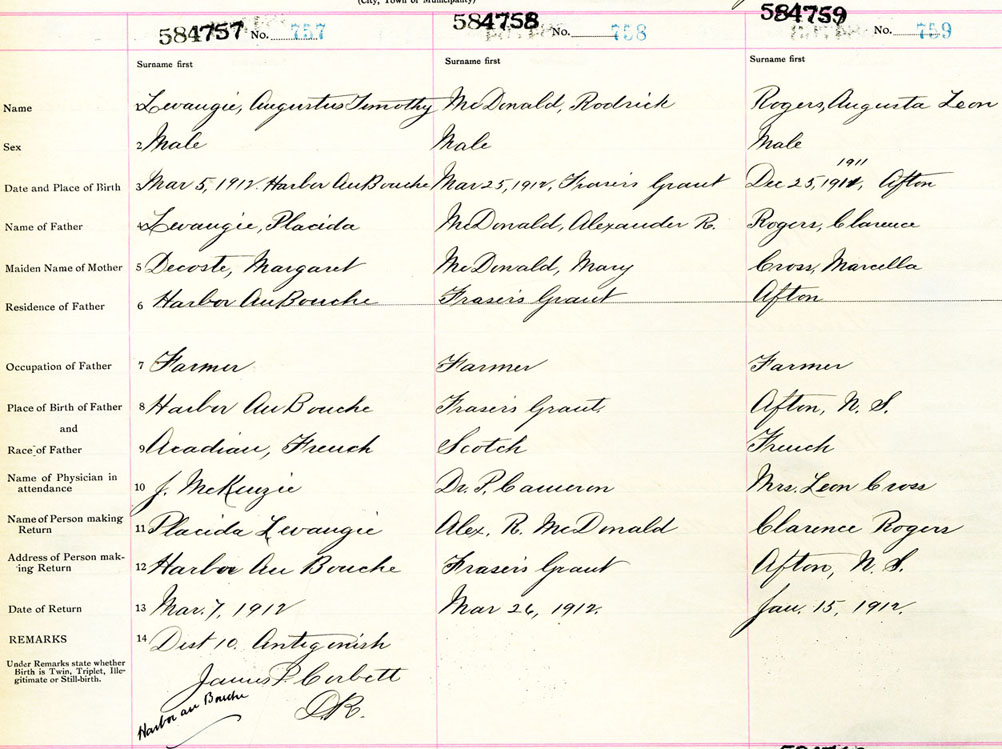 (City, Town or Municipality)
584757 No. 757 584758 No. 758 584759 No. 759
Surname first Surname first Surname first
Name 1 Levangie, Augustus Timothy McDonald, Rodrick Rogers, Augusta Leon
Sex 2 Male Male Male
1911
Date and Place of Birth 3 Mar 5, 1912. Harbor Au Bouche Mar 25, 1912, Frasers Grant Dec 25, 1911, Afton
Name of Father 4 Levangie, Placida McDonald, Alexander R. Rogers, Clarence
Maiden Name of Mother 5 Decoste, Margaret McDonald, Mary Cross, Marcella
Residence of Father 6 Harbor Au Bouche Frasers Grant Afton
Occupation of Father 7 Farmer Farmer Farmer
Place of Birth of Father 8 Harbor Au Bouche Frasers Grant, Afton, N. S.
and
Race of Father 9 Acadian, French Scotch French
Name of Physician in attendance 10 J. McKenzie Dr. P. Cameron Mrs. Leon Cross
Name of Person making Return 11 Placida Levangie Alex. R. McDonald Clarence Rogers
Address of Person mak-ing Return 12 Harbor Au Bouche Frasers Grant Afton, N. S.
Date of Return 13 Mar. 7, 1912 Mar 26, 1912. Jan. 15, 1912.
REMARKS 14 Dist 10. Antigonish
Under Remarks state whether
Birth is Twin, Triplet, Ille-
gitimate or Still-birth.
James P. Corbett
D.R.
Harbor au Bouche